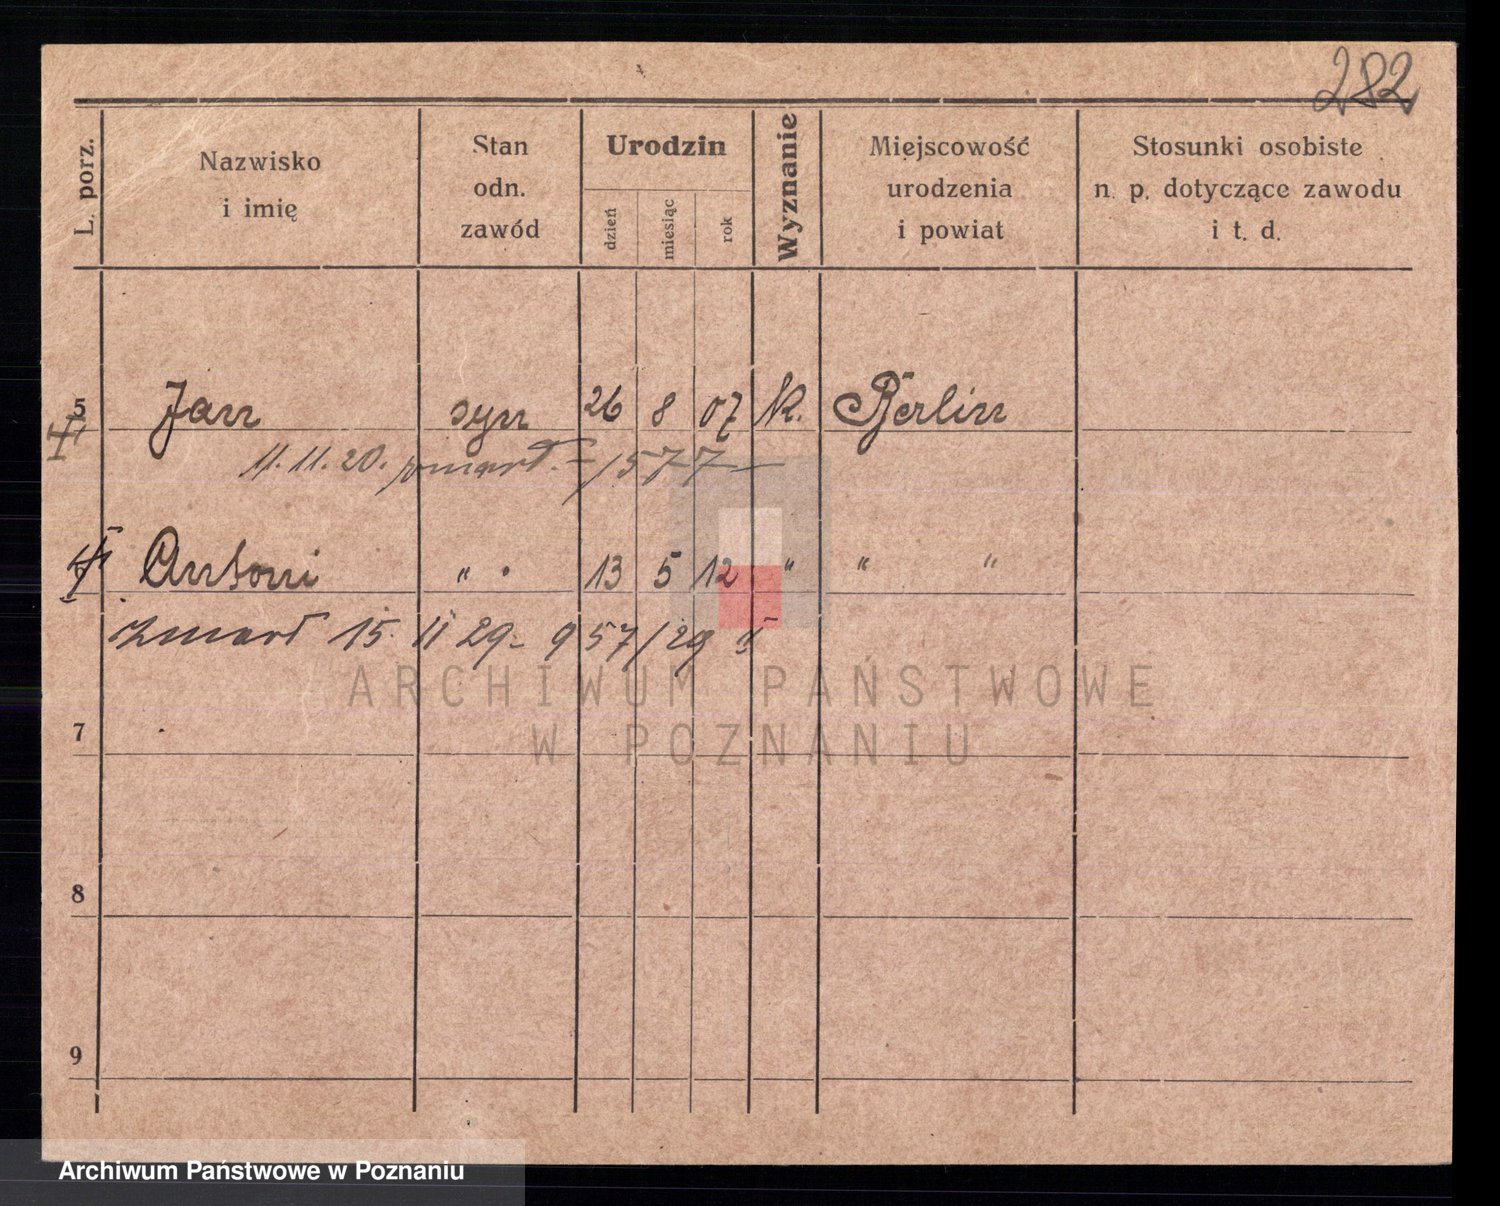 282
L. porz.
Nazwisko
i imię
Stan
odn.
zawód
Urodzin
dzień
miesiąc
rok
Wyznanie
Miejscowość
urodzenia
i powiat
Stosunki osobiste
n. p. dotyczące zawodu
i t. d.
5 Jan syn 26 8 07 K. Berlin
11. 11. 20. zmarł. - 1577 -
Antoni " 13 5 12 " " "
zmarł 15. II 29 - 957/29 II
7
8
9
ARCHIWUM PAŃSTWOWE
W POZNANIU
Archiwum Państwowe w Poznaniu